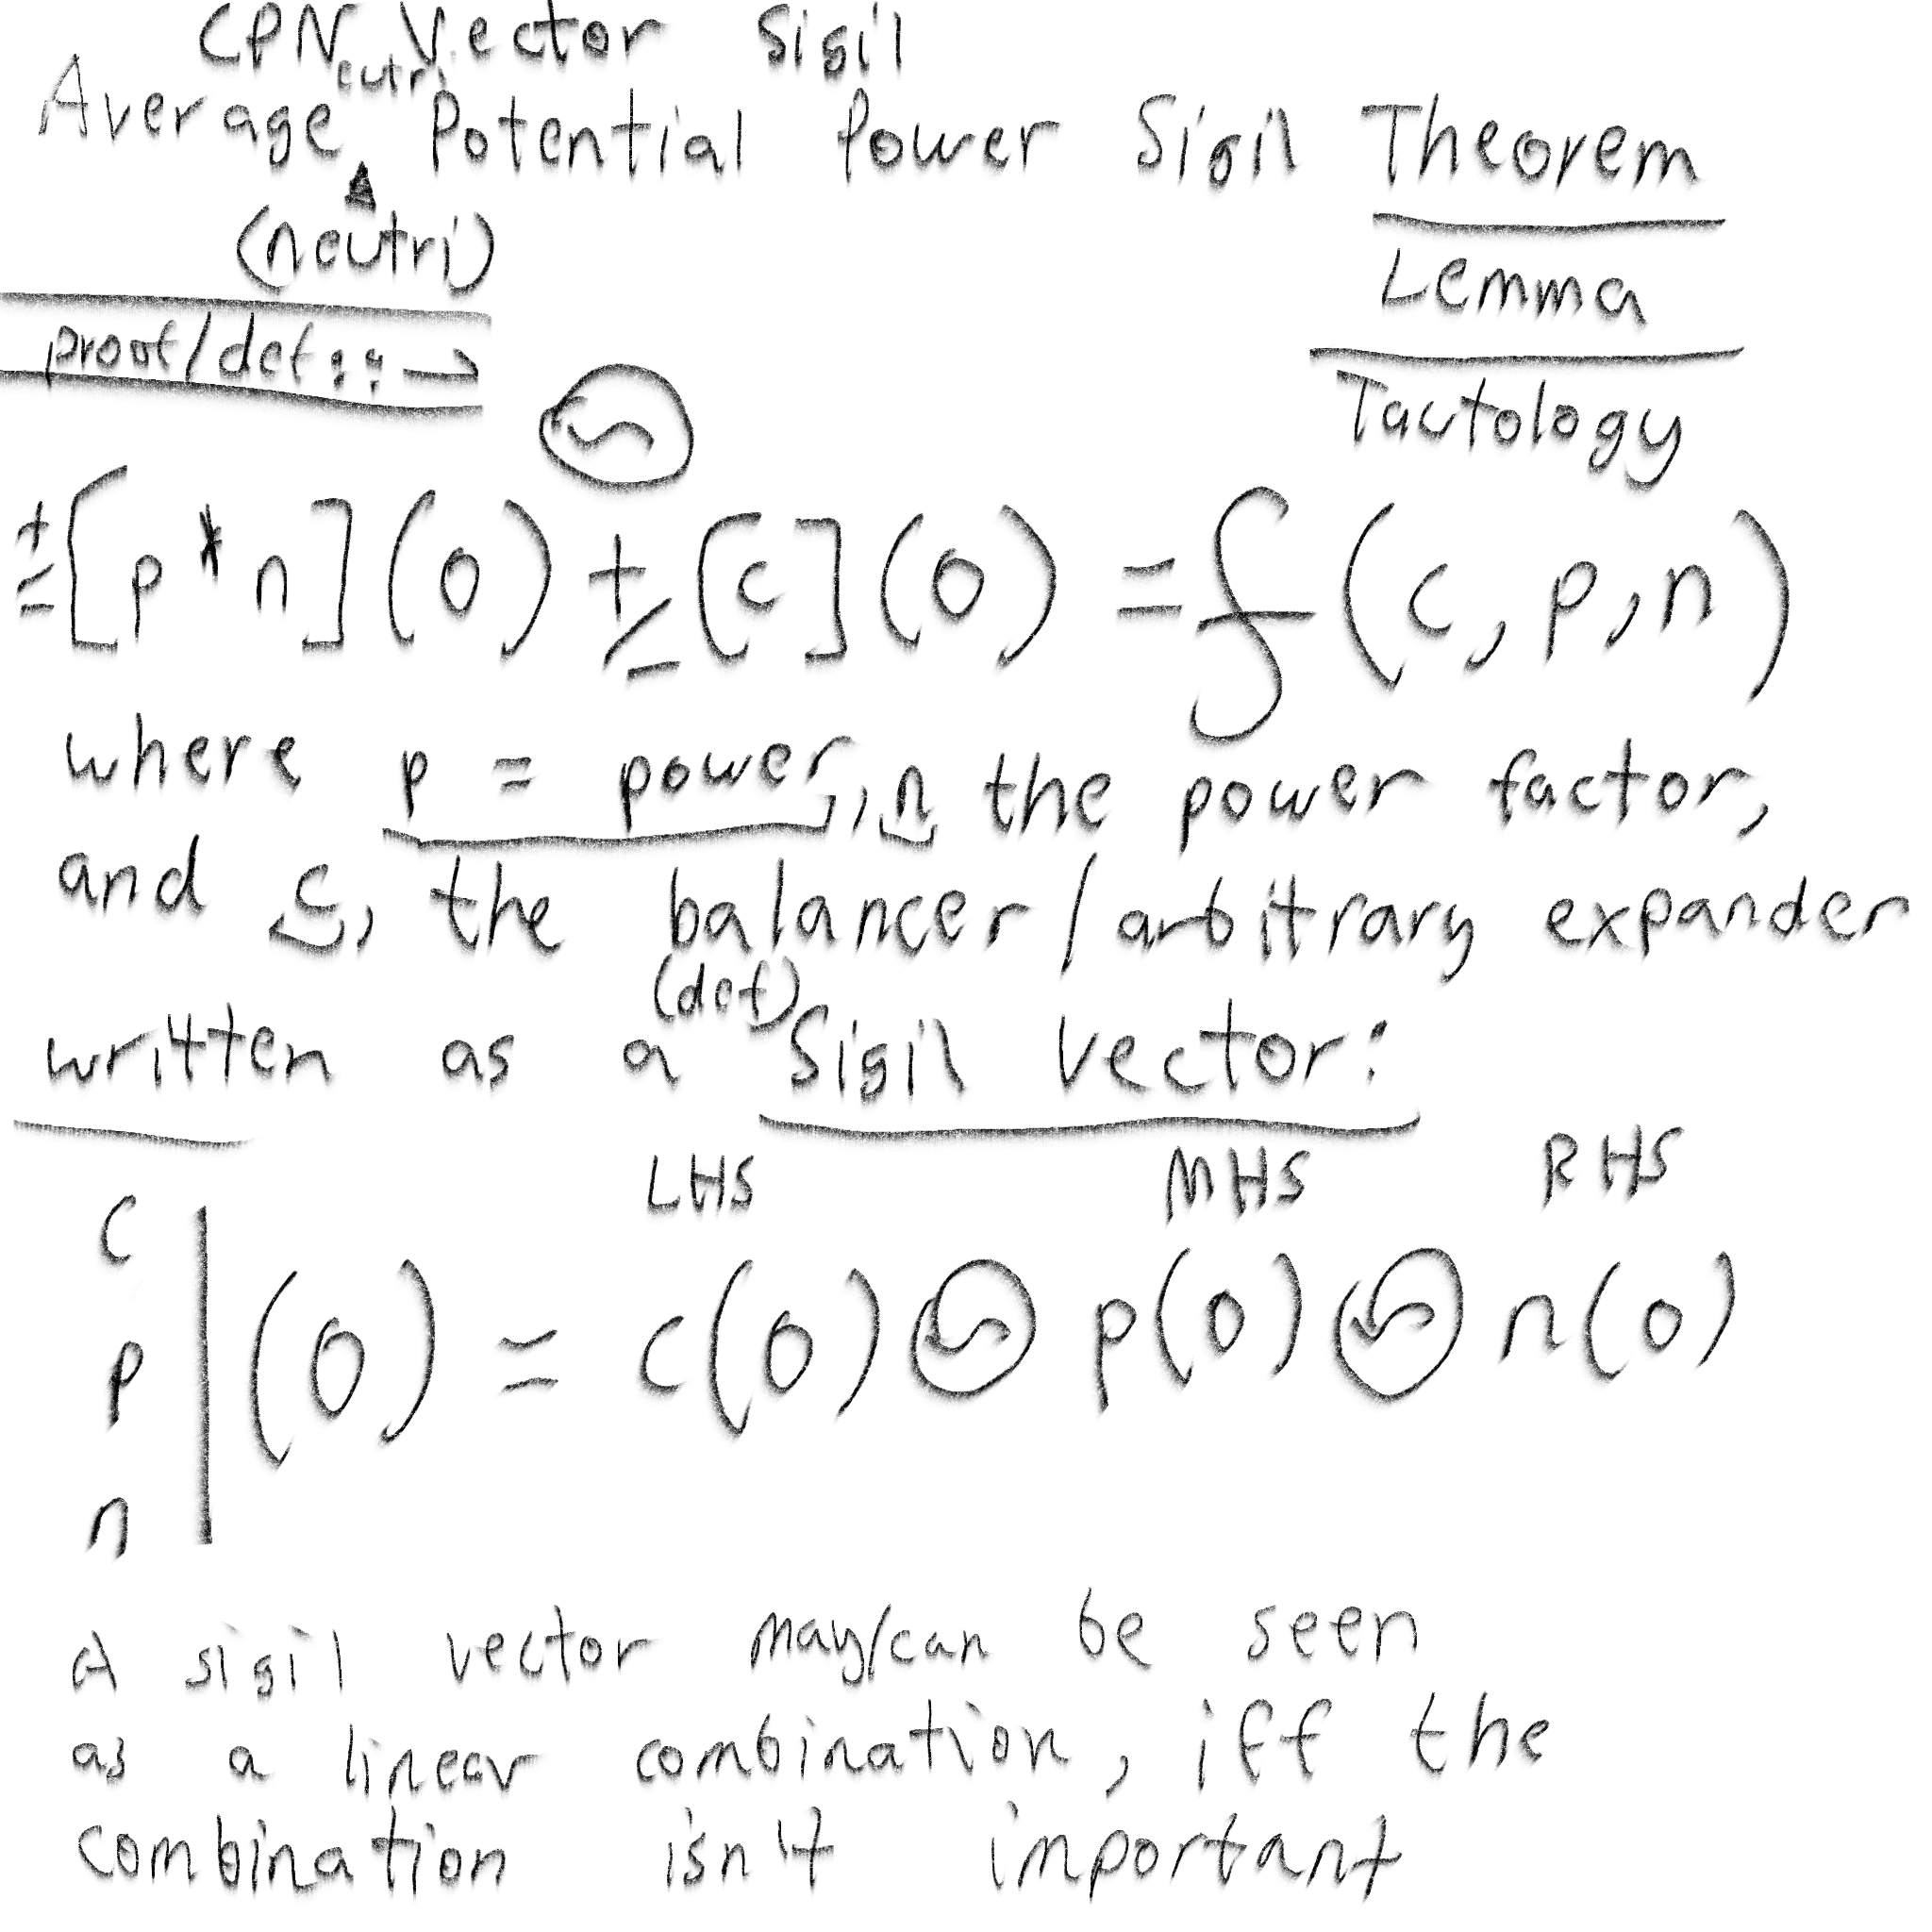 CPN Vector Sigil
eutri
Average Potential Power Sigil Theorem
(neutri)
Lemma
proof/def:: →
Tautology
±[p*n](0) ± [c](0) = f(c,p,n)
where p = power,, n the power factor,
and c, the balancer/arbitrary expander
(def)
written as a Sigil vector:
LHS MHS RHS
c
p |(0) = c(0) p(0) n(0)
n
A sigil vector may/can be seen
as a linear combination, iff the
combination isn't important